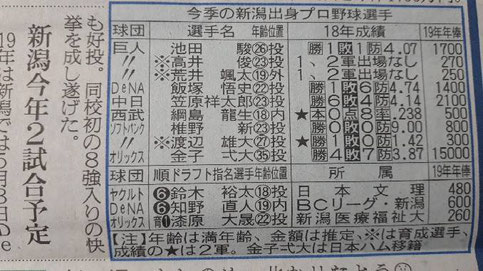 今季の新潟出身プロ野球選手
球団 選手名 年齢位置 18年成績 19年年俸
巨人 池田 駿㉖投 勝1敗1防4.07 1700
〃 ※高井 俊㉓投 1、2軍出場なし 270
〃 ※荒井颯太⑲外 1、2軍出場なし 250
DeNA 飯塚悟史㉒投 勝1敗6防4.74 1400
中日 笠原祥太郎㉓投 勝6敗4防4.14 2100
西武 綱島龍生⑱内 ★本0点8率.238 500
ソフトバンク 椎野 新㉓投 勝0敗0防9.00 800
〃 ※渡辺雄大㉗投 ★勝0敗1防1.42 300
オリックス 金子弌大㉟投 勝4敗7防3.87 15000
球団 順 ドラフト指名選手 年齢位置 所属 19年年俸
ヤクルト ⑥鈴木裕太⑱投 日本文理 480
DeNA ⑥知野直人⑲内 BCリーグ・新潟 600
オリックス 育①漆原大晟㉒投 新潟医療福祉大 260
【注】年齢は満年齢、金額は推定、※は育成選手、
成績の★は2軍。金子弌大は日本ハム移籍
も好投。同校初の8強入りの快
挙を成し遂げた。
新潟今年2試合予定
19年は新潟で5月8日のDe